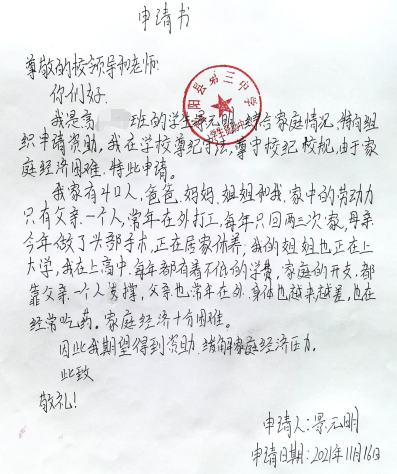 申请书
尊敬的校领导和老师:
你们好.
我是高 班的学生景元明,结合家庭情况,特向组
织申请资助,我在学校尊纪守法,遵守校纪校规,由于家
庭经济困难,特此申请。
我家有4口人,爸爸、妈妈、姐姐和我,家中的劳动力
只有父亲一个人,常年在外打工,每年只回两三次家,母亲
今年做了头部手术,正在居家休养;我的姐姐也正在上
大学,我在上高中,每年都有着不低的学费,家庭的开支,都
靠父亲一个人支撑,父亲也常年在外,身体也越来越差,也在
经常吃药。家庭经济十分困难。
因此我期望得到资助,缓解家庭经济压力.
此致
敬礼!
申请人:景元明
申请日期:2021年11月16日
阳县第三中学